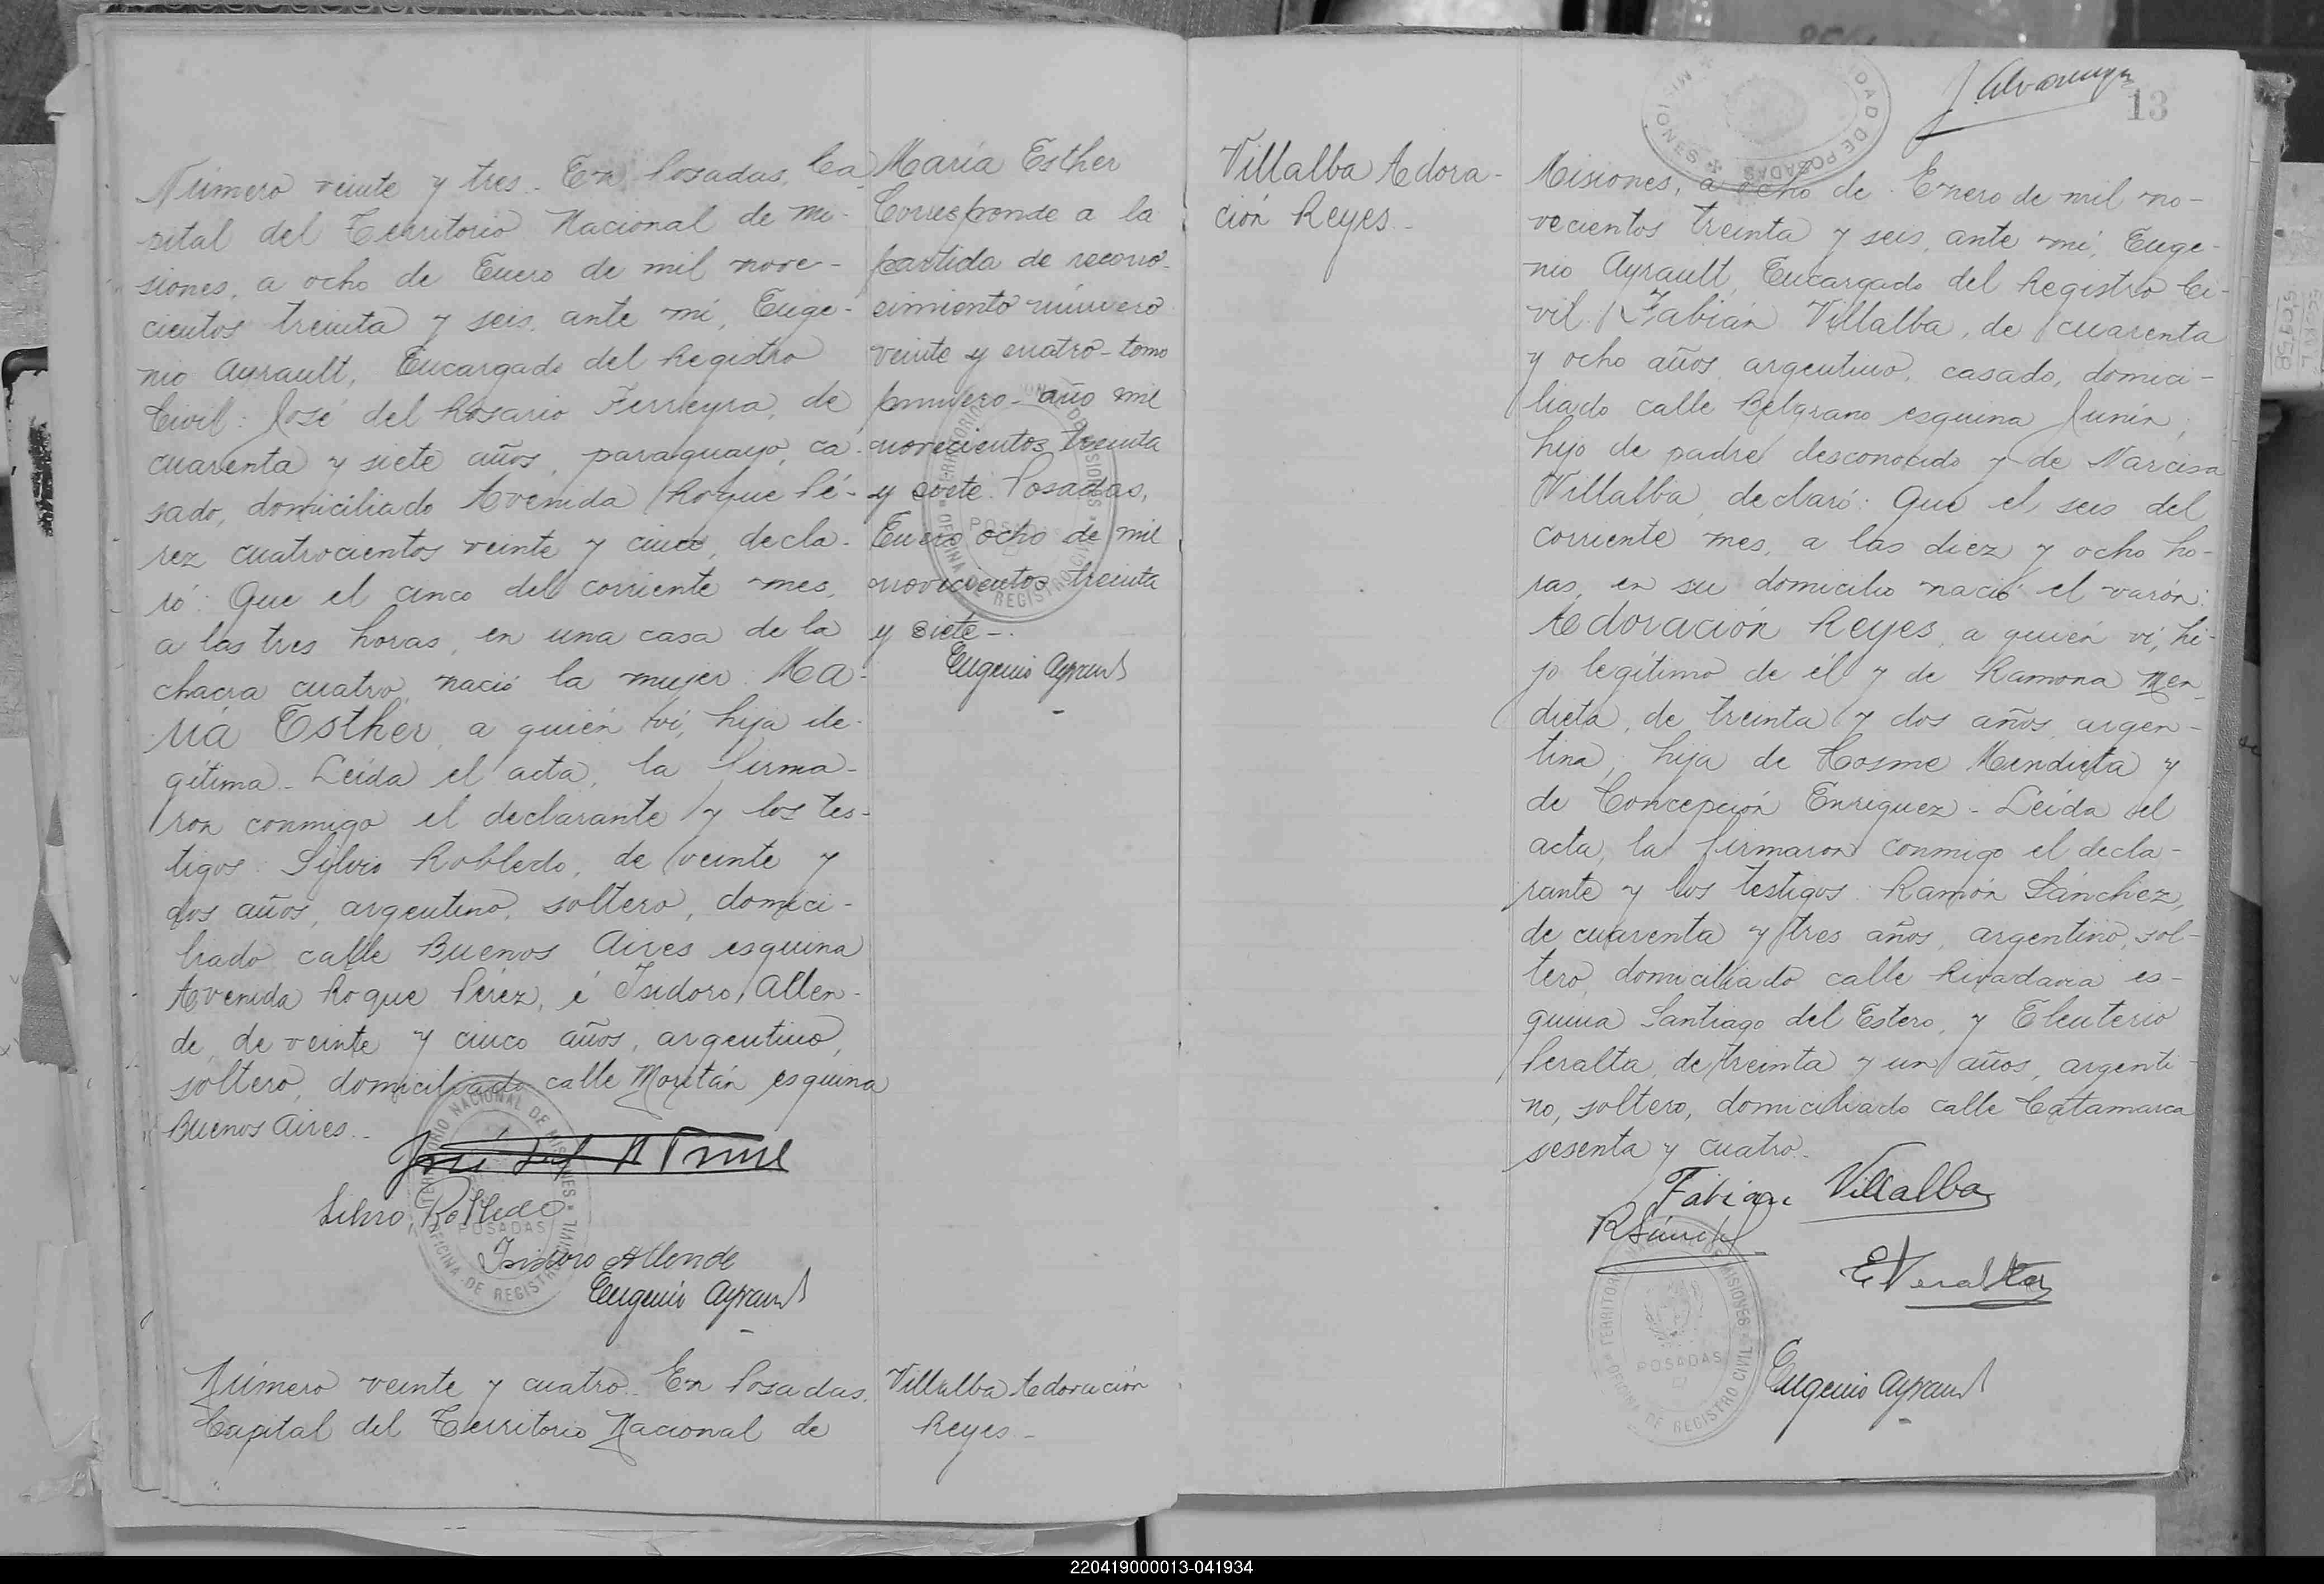 Número veinte y tres. En Posadas, Ca-
pital del Territorio Nacional de Mi-
siones, a ocho de Enero de mil nove-
cientos treinta y seis, ante mí, Euge-
nio Ayrault, Encargado del Registro
Civil: José del Rosario Ferreyra, de
cuarenta y siete años, paraguayo, ca-
sado, domiciliado Avenida Roque Pé-
rez cuatrocientos veinte y cinco, decla-
ró: Que el cinco del corriente mes,
a las tres horas, en una casa de la
chacra cuatro, nació la mujer: Ma-
ría Esther, a quién vi, hija ile-
gítima. Leída el acta, la firma-
ron conmigo el declarante y los tes-
tigos: Silvio Robledo, de veinte y
dos años, argentino, soltero, domici-
liado calle Buenos Aires esquina
Avenida Roque Pérez, é Isidoro Allen-
de, de veinte y cinco años, argentino,
soltero, domiciliado calle Moritán esquina
Buenos Aires.
Silvio Robledo
Isidoro Allende
Eugenio Ayrault
Número veinte y cuatro. En Posadas,
Capital del Territorio Nacional de
María Esther
Corresponde a la
partida de recono-
cimiento número
veinte y cuatro - tomo
primero - año mil
novecientos treinta
y siete. Posadas,
Enero ocho de mil
novecientos treinta
y siete.
Eugenio Ayrault
Villalba Adoración
Reyes
Villalba Adora-
ción Reyes
13
Misiones, a ocho de Enero de mil no-
vecientos treinta y seis, ante mí, Euge-
nio Ayrault, Encargado del Registro Ci-
vil: Fabián Villalba, de cuarenta
y ocho años, argentino, casado, domici-
liado calle Belgrano esquina Junín,
hijo de padre desconocido y de Narcisa
Villalba, declaró: Que el seis del
corriente mes, a las diez y ocho ho-
ras, en su domicilio nació el varón:
Adoración Reyes, a quién vi, hi-
jo legítimo de él y de Ramona Men-
dieta, de treinta y dos años, argen-
tina, hija de Cosme Mendieta y
de Concepción Enriquez. Leída el
acta, la firmaron conmigo el decla-
rante y los testigos: Ramón Sánchez,
de cuarenta y tres años, argentino, sol-
tero, domiciliado calle Rivadavia es-
quina Santiago del Estero, y Eleuterio
Peralta, de treinta y un años, argenti-
no, soltero, domiciliado calle Catamarca
sesenta y cuatro.
Fabian Villalba
E Peralta
Eugenio Ayrault
TERRITORIO NACIONAL DE MISIONES
OFICINA DE REGISTRO CIVIL
POSADAS
220419000013-041934